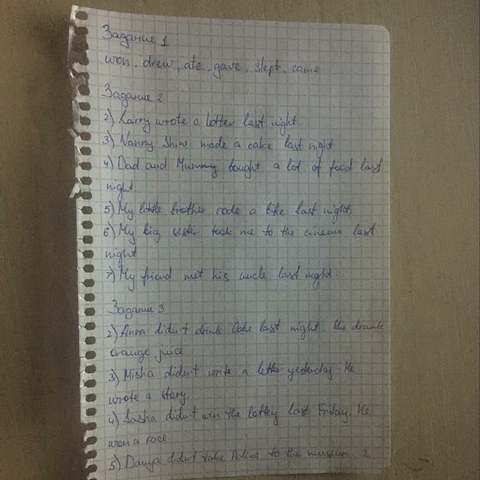 Задание 1
won, drew, ate, gave, slept, came
Задание 2
2) Larry wrote a letter last night.
3) Nanny Shine made a cake last night
4) Dad and Mummy bought a lot of food last
night.
5) My little brother rode a bike last night.
6) My big sister took me to the cinema last
night
7) My friend met his uncle last night.
Задание 3
2) Anna didn't drink Coke last night. She drank
orange juice
3) Misha didn't write a letter yesterday. He
wrote a story
4) Sasha didn't win the lottery last Friday. He
won a race
5) Danya didn't take Polina to the museum